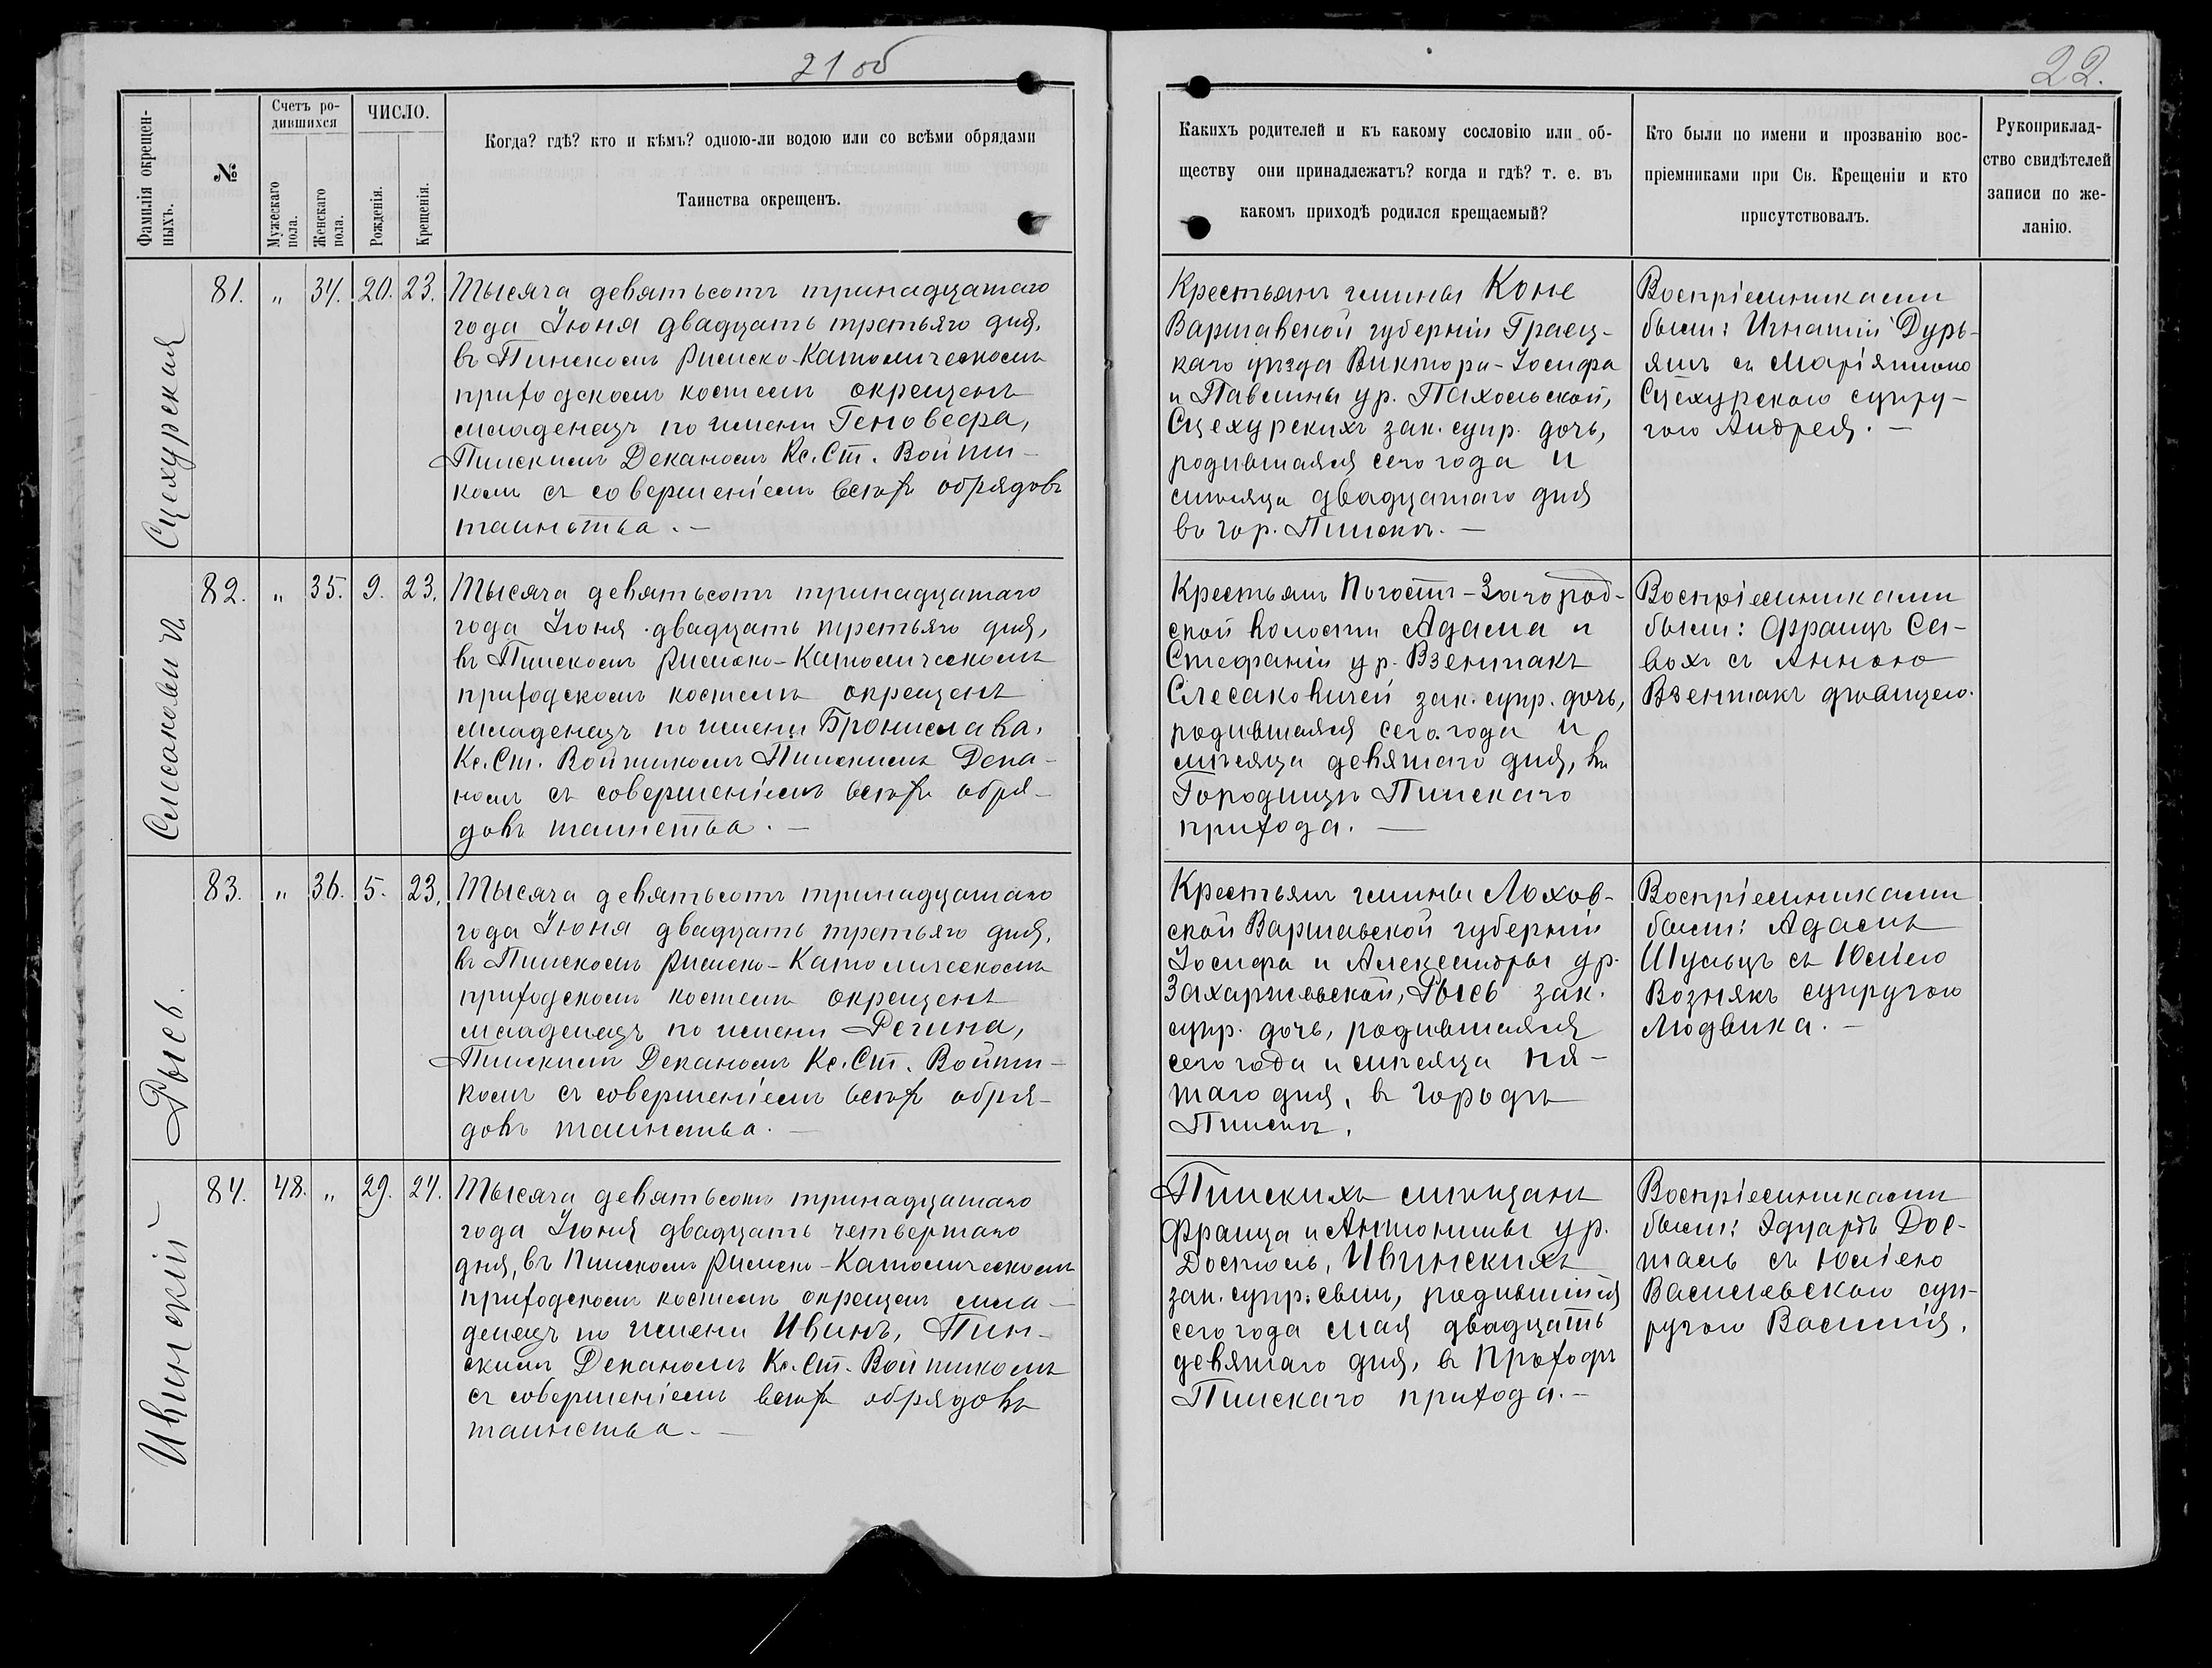 21 об
22.
Фамилія окрещен-
ныхъ.
№
Счетъ ро-
дившихся
Мужескаго
пола.
Женскаго
пола.
ЧИСЛО.
Рожденія.
Крещенія.
Когда? гдѣ? кто и кѣмъ? одною-ли водою или со всѣми обрядами
Таинства окрещенъ.
Какихъ родителей и къ какому сословію или об-
ществу они принадлежатъ? когда и гдѣ? т. е. въ
какомъ приходѣ родился крещаемый?
Кто были по имени и прозванію вос-
пріемниками при Св. Крещеніи и кто
присутствовалъ.
Рукоприклад-
ство свидѣтелей
записи по же-
ланію.
Сцехурская
81. " 34. 20. 23.
Тысяча девятьсотъ тринадцатаго
года Іюня двадцать третьяго дня,
въ Пинскомъ Римско-Католическомъ
приходскомъ костелѣ окрещенъ
младенецъ по имени Геновефа,
Пинскимъ Деканомъ Кс. Ст. Войти-
комъ съ совершеніемъ всѣхъ обрядовъ
таинства. —
Крестьянъ гмины Коне
Варшавской губерніи Граец-
каго уѣзда Виктора-Іосифа
и Павлины ур. Пахольской,
Сцехурскихъ зак. супр. дочь,
родившаяся сего года и
мѣсяца двадцатаго дня
въ гор. Пинскѣ. —
Воспріемниками
были: Игнатій Дурь-
янъ съ Маріянною
Сцехурскою супру-
гою Андрея. —
Слесаковичъ
82. " 35. 9. 23.
Тысяча девятьсотъ тринадцатаго
года Іюня двадцать третьяго дня,
въ Пинскомъ Римско-Католическомъ
приходскомъ костелѣ окрещенъ
младенецъ по имени Бронислава,
Кс. Ст. Войтикомъ Пинскимъ Дека-
номъ съ совершеніемъ всѣхъ обря-
довъ таинства. —
Крестьянъ Погостъ-Загород-
ской волости Адама и
Стефаніи ур. Взентакъ
Слесаковичей зак. супр. дочь,
родившаяся сего года и
мѣсяца девятаго дня, въ
Городищѣ Пинскаго
прихода. —
Воспріемниками
были: Францъ Са-
вохъ съ Анною
Взентакъ дѣвицею.
Рысь.
83. " 36. 5. 23.
Тысяча девятьсотъ тринадцатаго
года Іюня двадцать третьяго дня,
въ Пинскомъ Римско-Католическомъ
приходскомъ костелѣ окрещенъ
младенецъ по имени Регина,
Пинскимъ Деканомъ Кс. Ст. Войти-
комъ съ совершеніемъ всѣхъ обря-
довъ таинства. —
Крестьянъ гмины Лохов-
ской Варшавской губерніи
Іосифа и Александры ур.
Захаржевской, Рысь зак.
супр. дочь, родившаяся
сего года и мѣсяца пя-
таго дня, въ городѣ
Пинскѣ.
Воспріемниками
были: Адамъ
Шульцъ съ Юліею
Вознякъ супругою
Людвика. —
Ивинскій
84. 48. " 29. 24.
Тысяча девятьсотъ тринадцатаго
года Іюня двадцать четвертаго
дня, въ Пинскомъ Римско-Католическомъ
приходскомъ костелѣ окрещенъ мла-
денецъ по имени Ивинъ, Пин-
скимъ Деканомъ Кс. Ст. Войтикомъ
съ совершеніемъ всѣхъ обрядовъ
таинства. —
Пинскихъ мѣщанъ
Франца и Антонины ур.
Досталь, Ивинскихъ
зак. супр. сынъ, родившійся
сего года мая двадцать
девятаго дня, въ
Пинскаго прихода. —
Воспріемниками
были: Эдуардъ Дос-
таль съ Юліею
Василевскою суп-
ругою Василія.